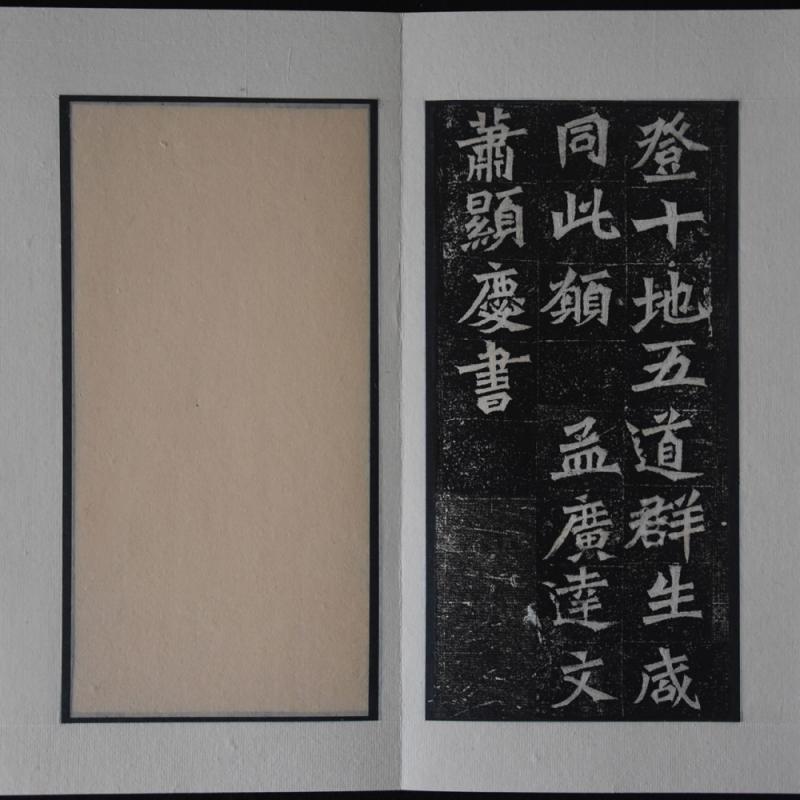 登十地五道群生咸
同此願　孟廣達文
蕭顯慶書